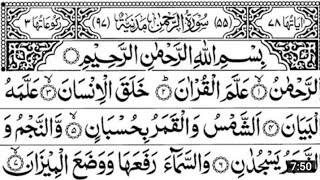 اٰيَاتُهَا ٧٨ (٥٥) سُوْرَةُ الرَّحْمٰنِ مَدَنِيَّةٌ (٩٧) رُكُوْعَاتُهَا ٣
بِسْمِ اللّٰهِ الرَّحْمٰنِ الرَّحِيْمِ
اَلرَّحْمٰنُ ۙ﴿١﴾ عَلَّمَ الْقُرْاٰنَ ؕ﴿٢﴾ خَلَقَ الْاِنْسَانَ ۙ﴿٣﴾ عَلَّمَهُ
الْبَيَانَ ﴿٤﴾ اَلشَّمْسُ وَ الْقَمَرُ بِحُسْبَانٍ ۪﴿٥﴾ وَّ النَّجْمُ وَ
الشَّجَرُ يَسْجُدٰنِ ﴿٦﴾ وَ السَّمَآءَ رَفَعَهَا وَ وَضَعَ الْمِيْزَانَ ۙ﴿٧﴾
7:50